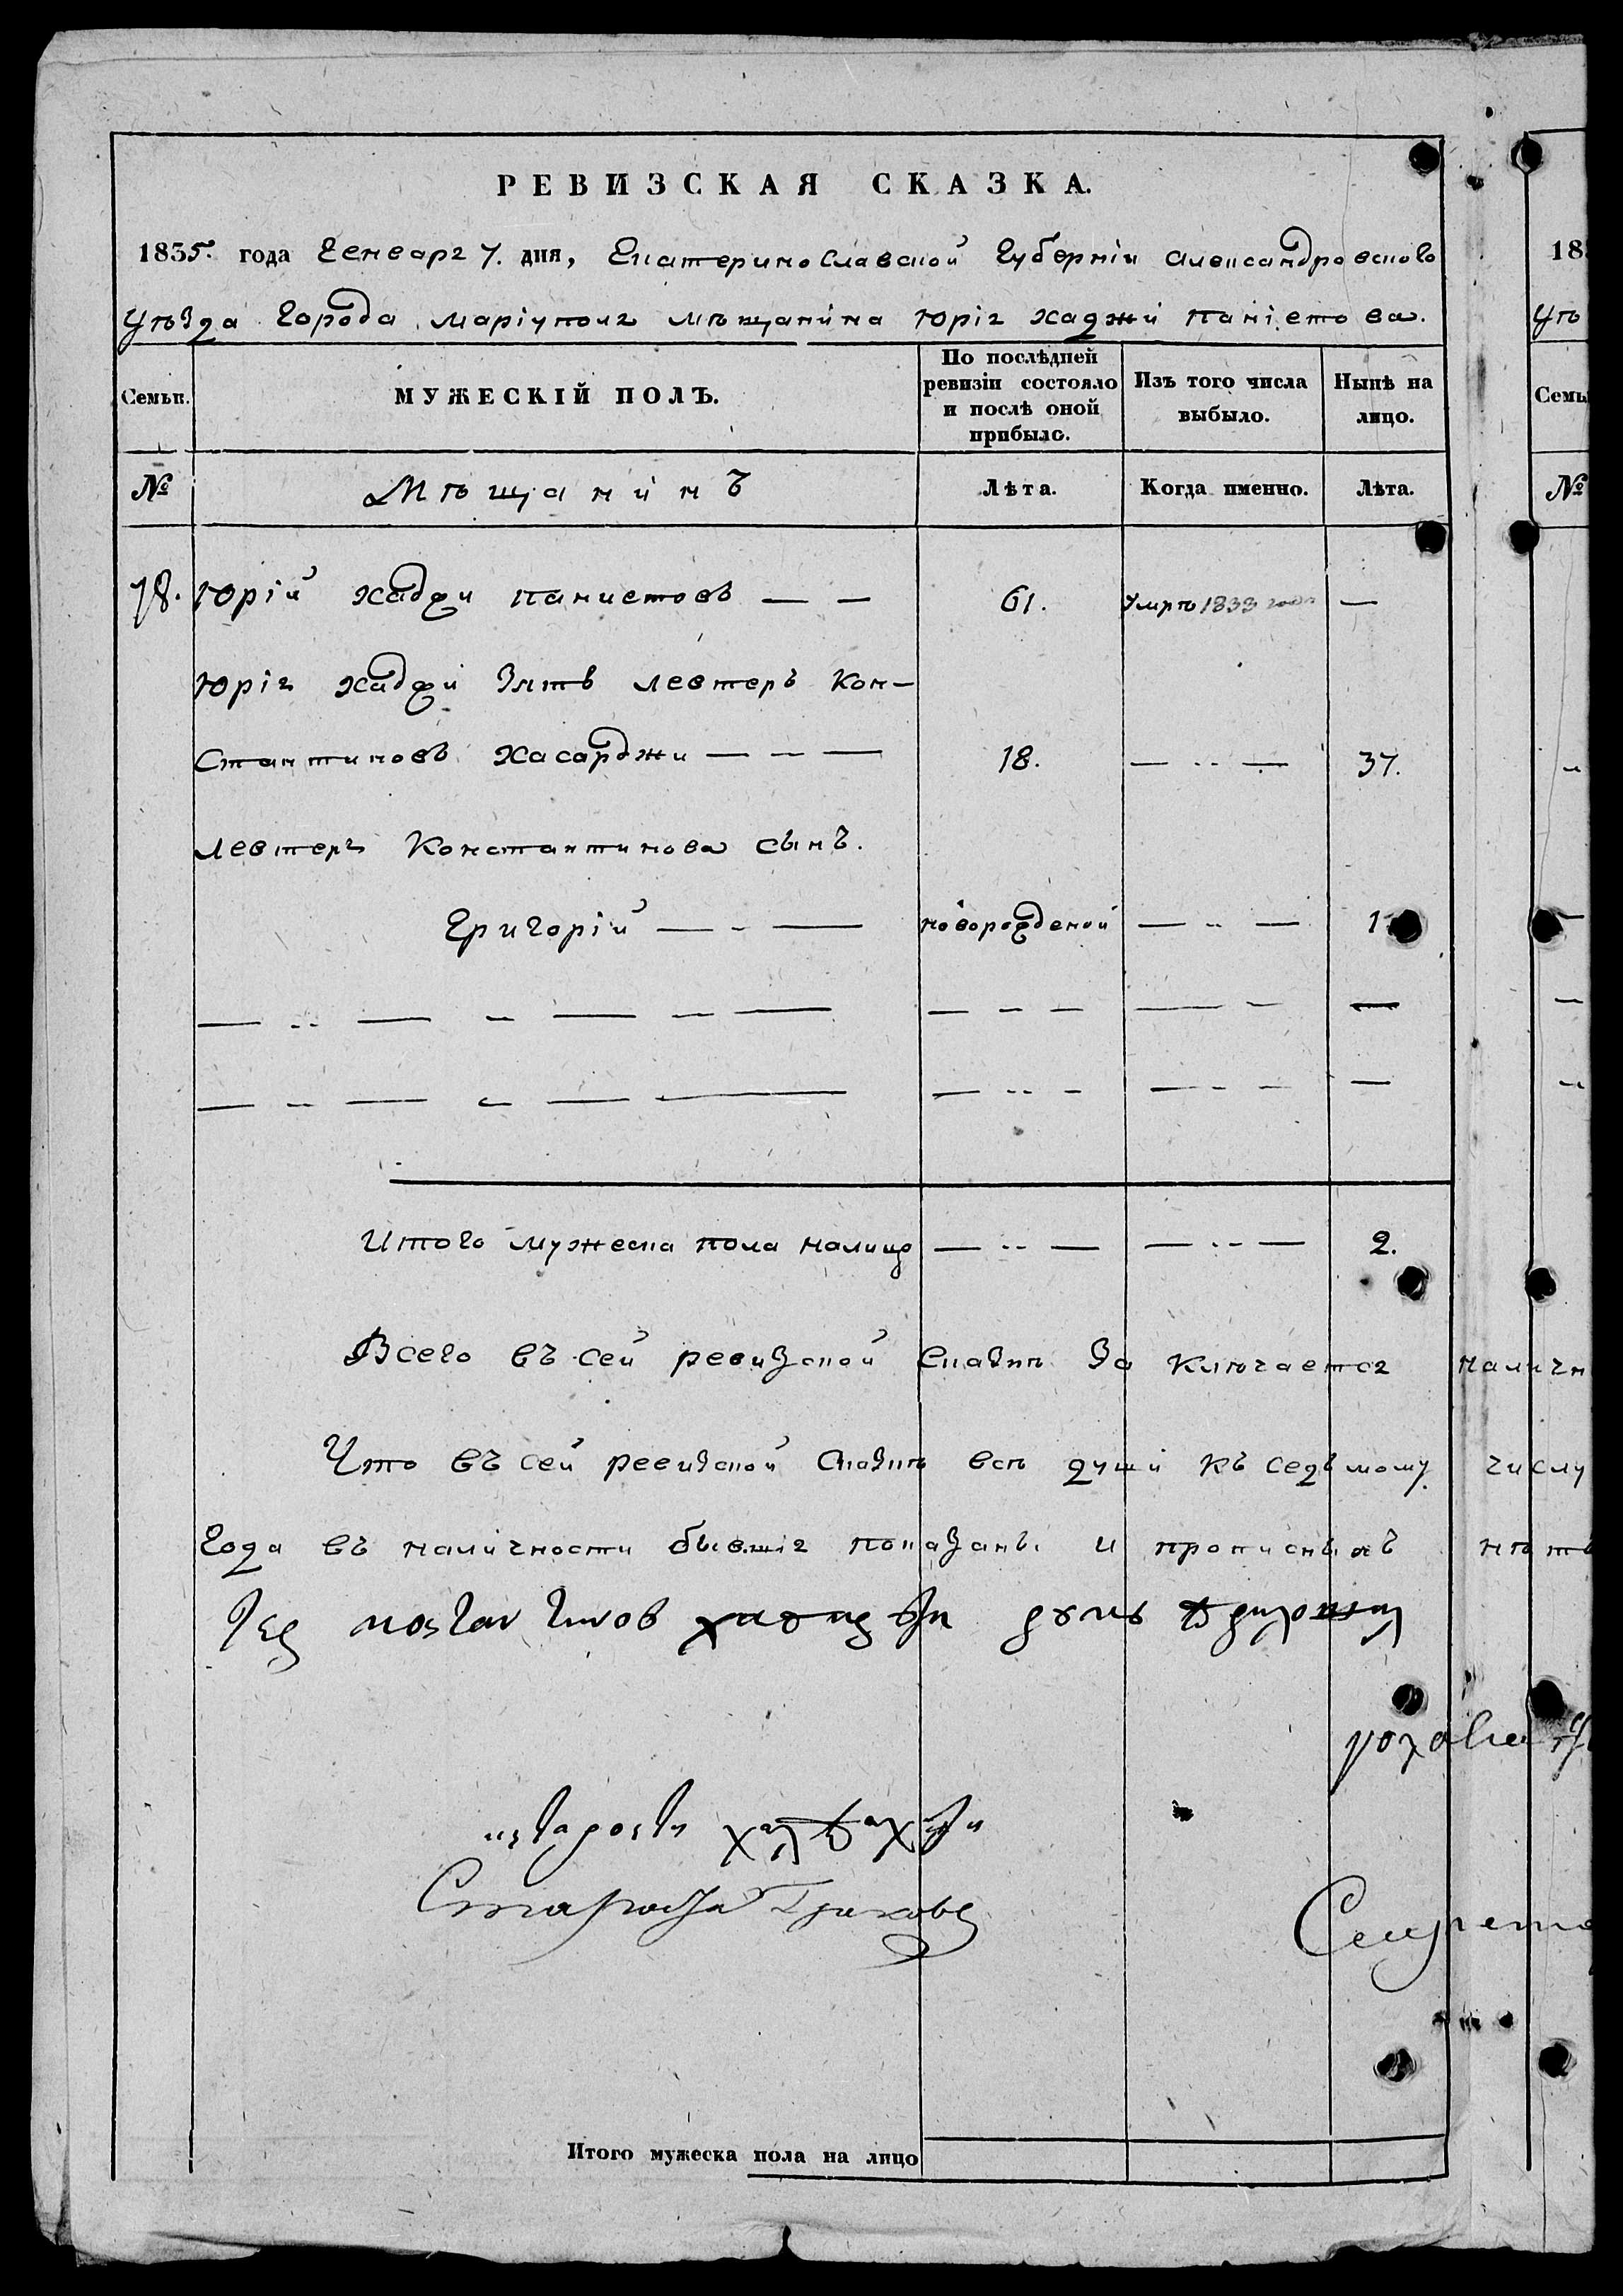 РЕВИЗСКАЯ СКАЗКА.
1835. года Генваря 7. дня, Екатеринославской Губерніи Александровского
Уѣзда Города Маріуполя Мѣщанина Юрія Хаджи Паніетова.
Семьи. МУЖЕСКІЙ ПОЛЪ. По послѣдней ревизіи состояло и послѣ оной прибыло. Изъ того числа выбыло. Нынѣ на лицо.
№ Мѣщанинъ Лѣта. Когда именно. Лѣта.
78. Юрій Хаджи Паниетовъ — — 61. Умре 1833 года —
Юрія Хаджи Зять Левтеръ Кон-
стантиновъ Хасарджи — - — 18. — .. — 37.
Левтера Константинова сынъ.
Григорій — - — новорожденой — .. — 1
Итого мужеска пола налицо — .. — — .. — 2.
Всего въ сей ревизской сказкѣ Заключается наличн
Что въ сей ревизской Сказкѣ всѣ души къ седьмому числу
Года въ наличности бывшія показаны и прописныхъ нѣтъ
Староста
Секрета
Итого мужеска пола на лицо
183
Уѣ
Семьи
№